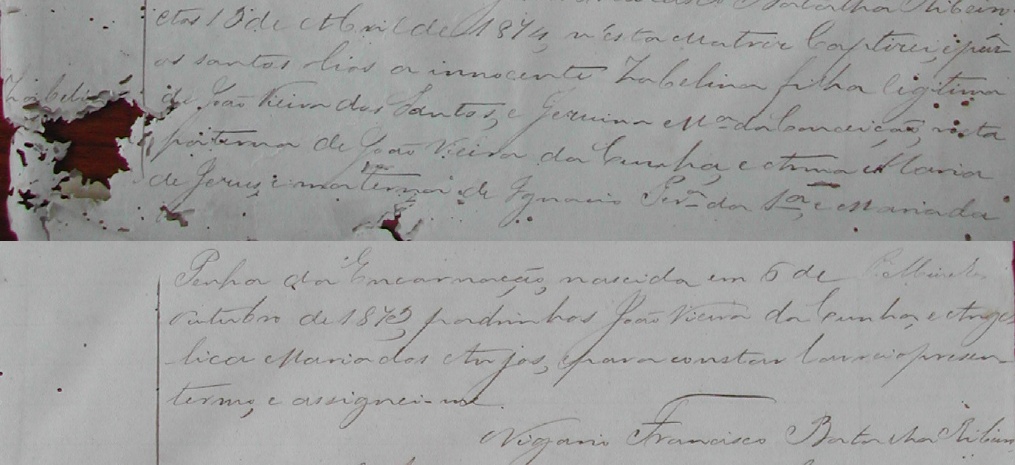 Batalha Ribeiro
Aos 13 de Abril de 1874, n'esta Matriz baptizei, e puz
os santos olios a innocente Izabelina filha legitima
Izabelina
de João Vieira dos Santos, e Geruina Mª da Conceição, neta
paterna de João Vieira da Cunha, e Anna Maria
de Jesus, e materna de Ignacio Perª da Sª, e Maria da
Penha da Encarnação, nascida em 6 de
outubro de 1873, padrinhos João Vieira da Cunha, e Ange
lica Maria dos Anjos, e para constar lavrei o presen-
termo, e assignei-me.
Vigario Francisco Batalha Ribeiro